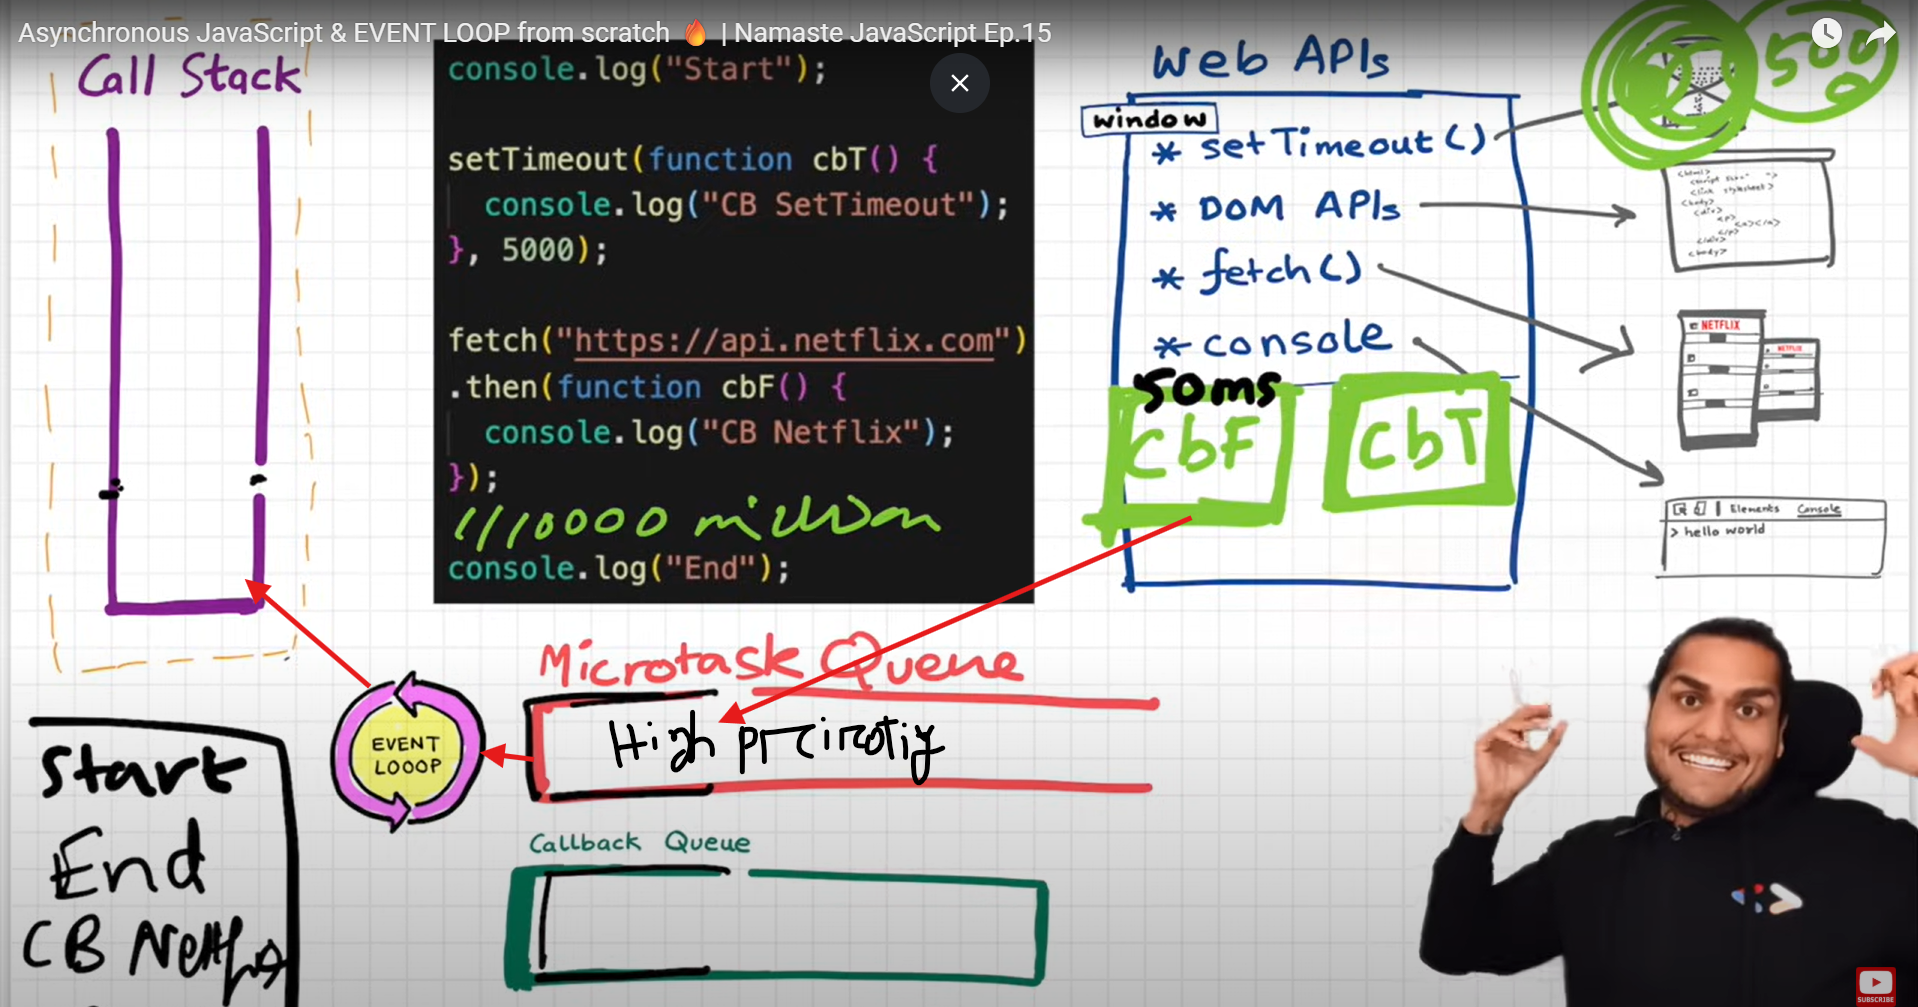 Asynchronous JavaScript & EVENT LOOP from scratch 🔥 | Namaste JavaScript Ep.15
Call Stack
console.log("Start");
setTimeout(function cbT() {
console.log("CB SetTimeout");
}, 5000);
fetch("https://api.netflix.com")
.then(function cbF() {
console.log("CB Netflix");
});
//10000 million
console.log("End");
Web APIs
window
* setTimeout()
* DOM APIs
* fetch()
* console
50ms
CbF
CbT
5000
<html>
<body>
<div>
<p>
<a></a>
</p>
</div>
<body>
NETFLIX
NETFLIX
Elements Console
> hello world
Microtask Queue
High prcircotiy
EVENT
LOOOP
Callback Queue
Start
End
CB Netflix
SUBSCRIBE